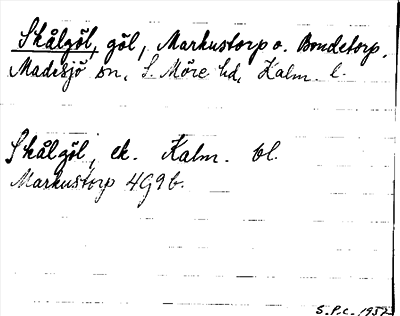 Skålgöl, göl, Markustorp o. Bondetorp,
Madesjö sn, S. Möre hd, Kalm. l.
Skålgöl, ek. Kalm. bl.
Markustorp 4G9b.
S.P.C. 1937